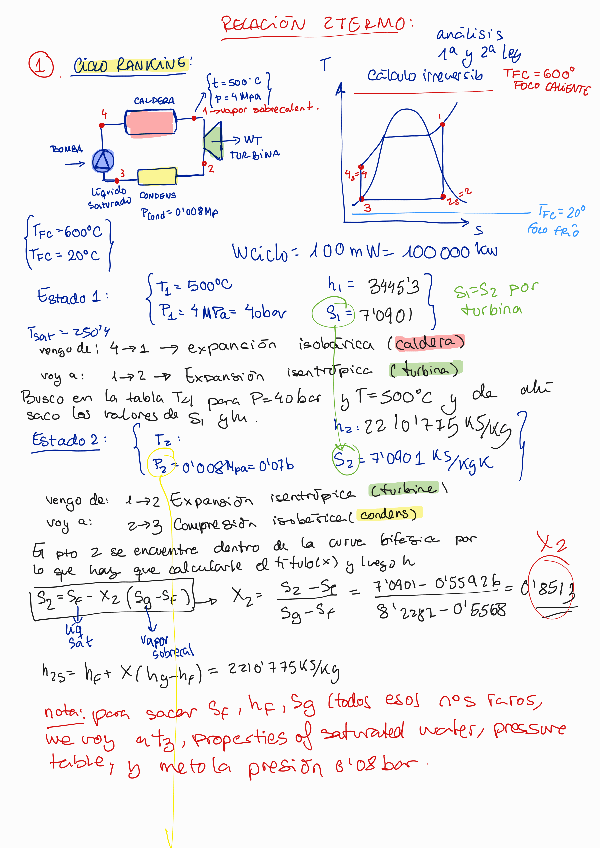 RELACIÓN 2TERMO:
análisis
1ª y 2ª ley
① CICLO RANKINE:
t=500°C
P=4MPa
1→vapor sobrecalent.
CALDERA
4
1
BOMBA
WT
TURBINA
2
3
líquido
saturado
CONDENS
Pcond=0'008MPa
T
Cálculo irreversib
TFC=600°
FOCO CALIENTE
1
4s=4
3
2s=2
S
TFC=20°
FOCO FRÍO
TFC=600°C
TFC=20°C
Wciclo=100mW=100000kW
Estado 1:
T1=500°C
P1=4MPa=40bar
h1=3445'3
S1=7'0901
S1=S2 por
turbina
Tsat=250'4
vengo de: 4→1 → expansión isobárica (caldera)
voy a: 1→2 → Expansión isentrópica (turbina)
Busco en la tabla T4 para P=40bar y T=500°C y de ahí
saco los valores de S1 y h1.
Estado 2:
T2:
P2=0'008MPa=0'07b
h2:2210'775KS/kg
S2=7'0901 KS/KgK
vengo de: 1→2 Expansión isentrópica (turbine)
voy a: 2→3 Compresión isobárica (condens)
El pto 2 se encuentre dentro de la curve bifásica por
lo que hay que calcularle el título(x) y luego h
X2
S2=SF-X2(Sg-SF) → X2= S2-SF / Sg-SF = 7'0901-0'55926 / 8'2282-0'5568 = 0'8513
líq
sat
vapor
sobrecal
h2s=hF+X(hg-hF)=2210'775KS/kg
nota: para sacar SF, hF, Sg (todos esos nos raros,
me voy a t3, properties of saturated water, pressure
table, y meto la presión 0'08bar.